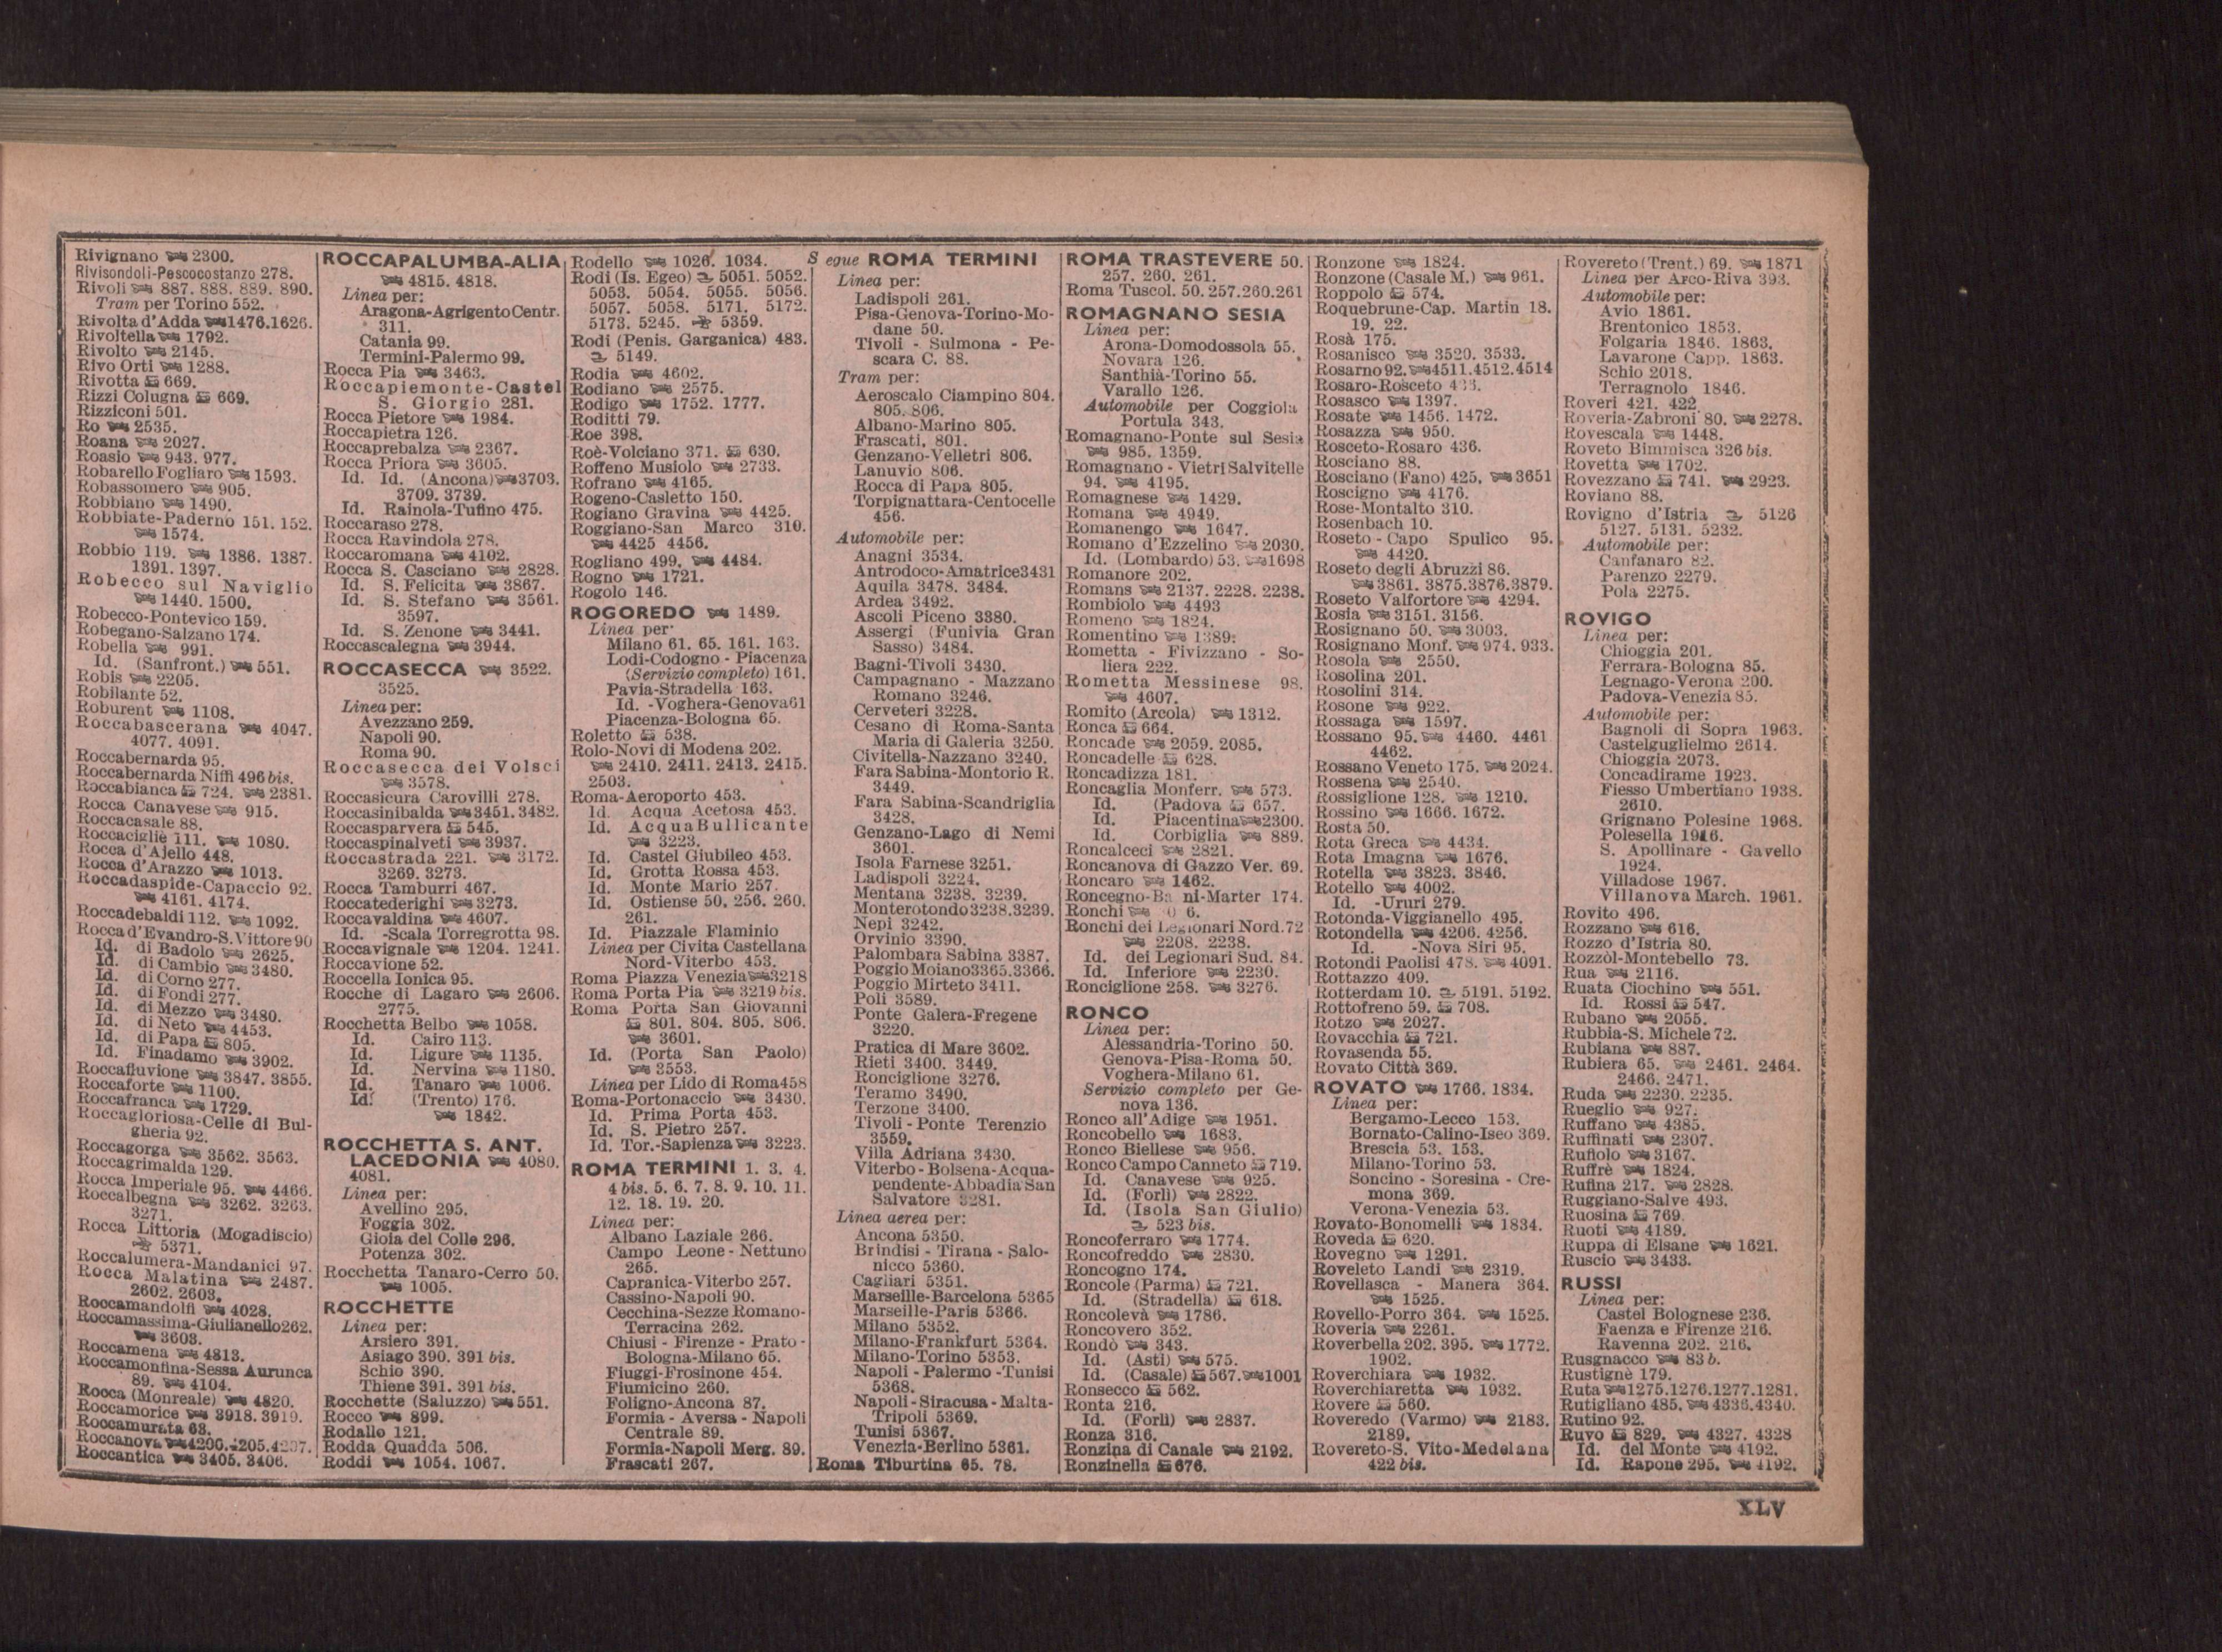 Rivignano 2300.
Rivisondoli-Pescocostanzo 278.
Rivoli 887. 888. 889. 890.
Tram per Torino 552.
Rivolta d'Adda 1476.1626.
Rivoltella 1792.
Rivolto 2145.
Rivo Orti 1288.
Rivotta 669.
Rizzi Colugna 669.
Rizziconi 501.
Ro 2535.
Roana 2027.
Roasio 943. 977.
Robarello Fogliaro 1593.
Robassomero 905.
Robbiano 1490.
Robbiate-Paderno 151. 152.
1574.
Robbio 119. 1386. 1387.
1391. 1397.
Robecco sul Naviglio
1440. 1500.
Robecco-Pontevico 159.
Robegano-Salzano 174.
Robella 991.
Id. (Sanfront.) 551.
Robis 2205.
Robilante 52.
Roburent 1108.
Roccabascerana 4047.
4077. 4091.
Roccabernarda 95.
Roccabernarda Niffi 496 bis.
Roccabianca 724. 2381.
Rocca Canavese 915.
Roccacasale 88.
Roccacigliè 111. 1080.
Rocca d'Ajello 448.
Rocca d'Arazzo 1013.
Roccadaspide-Capaccio 92.
4161. 4174.
Roccadebaldi 112. 1092.
Rocca d'Evandro-S.Vittore 90
Id. di Badolo 2625.
Id. di Cambio 3480.
Id. di Corno 277.
Id. di Fondi 277.
Id. di Mezzo 3480.
Id. di Neto 4453.
Id. di Papa 805.
Id. Finadamo 3902.
Roccafluvione 3847. 3855.
Roccaforte 1100.
Roccafranca 1729.
Roccagloriosa-Celle di Bul-
gheria 92.
Roccagorga 3562. 3563.
Roccagrimalda 129.
Rocca Imperiale 95. 4466.
Roccalbegna 3262. 3263.
3271.
Rocca Littoria (Mogadiscio)
5371.
Roccalumera-Mandanici 97.
Rocca Malatina 2487.
2602. 2603.
Roccamandolfi 4028.
Roccamassima-Giulianello 262.
3603.
Roccamena 4813.
Roccamonfina-Sessa Aurunca
89. 4104.
Rocca (Monreale) 4820.
Roccamorice 3918. 3919.
Roccamurata 63.
Roccanova 4200. 4205. 4207.
Roccantica 3405. 3406.
ROCCAPALUMBA-ALIA
4815. 4818.
Linea per:
Aragona-Agrigento Centr.
311.
Catania 99.
Termini-Palermo 99.
Rocca Pia 3463.
Roccapiemonte-Castel
S. Giorgio 281.
Rocca Pietore 1984.
Roccapietra 126.
Roccaprebalza 2367.
Rocca Priora 3605.
Id. Id. (Ancona) 3703.
3709. 3739.
Id. Rainola-Tufino 475.
Roccaraso 278.
Rocca Ravindola 278.
Roccaromana 4102.
Rocca S. Casciano 2828.
Id. S. Felicita 3867.
Id. S. Stefano 3561.
3597.
Id. S. Zenone 3441.
Roccascalegna 3944.
ROCCASECCA 3522.
3525.
Linea per:
Avezzano 259.
Napoli 90.
Roma 90.
Roccasecca dei Volsci
3578.
Roccasicura Carovilli 278.
Roccasinibalda 3451. 3482.
Roccasparvera 545.
Roccaspinalveti 3937.
Roccastrada 221. 3172.
3269. 3273.
Rocca Tamburri 467.
Roccatederighi 3273.
Roccavaldina 4607.
Id. -Scala Torregrotta 98.
Roccavignale 1204. 1241.
Roccavione 52.
Roccella Ionica 95.
Rocche di Lagaro 2606.
2775.
Rocchetta Belbo 1058.
Id. Cairo 113.
Id. Ligure 1135.
Id. Nervina 1180.
Id. Tanaro 1006.
Id. (Trento) 176.
1842.
ROCCHETTA S. ANT.
LACEDONIA 4080.
4081.
Linea per:
Avellino 295.
Foggia 302.
Gioia del Colle 296.
Potenza 302.
Rocchetta Tanaro-Cerro 50.
1005.
ROCCHETTE
Linea per:
Arsiero 391.
Asiago 390. 391 bis.
Schio 390.
Thiene 391. 391 bis.
Rocchette (Saluzzo) 551.
Rocco 899.
Rodallo 121.
Rodda Quadda 506.
Roddi 1054. 1067.
Rodello 1026. 1034.
Rodi (Is. Egeo) 5051. 5052.
5053. 5054. 5055. 5056.
5057. 5058. 5171. 5172.
5173. 5245. 5359.
Rodi (Penis. Garganica) 483.
5149.
Rodia 4602.
Rodiano 2575.
Rodigo 1752. 1777.
Roditti 79.
Roe 398.
Roè-Volciano 371. 630.
Roffeno Musiolo 2733.
Rofrano 4165.
Rogeno-Casletto 150.
Rogiano Gravina 4425.
Roggiano-San Marco 310.
4425 4456.
Rogliano 499. 4484.
Rogno 1721.
Rogolo 146.
ROGOREDO 1489.
Linea per:
Milano 61. 65. 161. 163.
Lodi-Codogno - Piacenza
(Servizio completo) 161.
Pavia-Stradella 163.
Id. -Voghera-Genova 61
Piacenza-Bologna 65.
Roletto 538.
Rolo-Novi di Modena 202.
2410. 2411. 2413. 2415.
2503.
Roma-Aeroporto 453.
Id. Acqua Acetosa 453.
Id. Acqua Bullicante
3223.
Id. Castel Giubileo 453.
Id. Grotta Rossa 453.
Id. Monte Mario 257.
Id. Ostiense 50. 256. 260.
261.
Id. Piazzale Flaminio
Linea per Civita Castellana
Nord-Viterbo 453.
Roma Piazza Venezia 3218
Roma Porta Pia 3219 bis.
Roma Porta San Giovanni
801. 804. 805. 806.
3601.
Id. (Porta San Paolo)
3553.
Linea per Lido di Roma 458
Roma-Portonaccio 3430.
Id. Prima Porta 453.
Id. S. Pietro 257.
Id. Tor.-Sapienza 3223.
ROMA TERMINI 1. 3. 4.
4 bis. 5. 6. 7. 8. 9. 10. 11.
12. 18. 19. 20.
Linea per:
Albano Laziale 266.
Campo Leone - Nettuno
265.
Capranica-Viterbo 257.
Cassino-Napoli 90.
Cecchina-Sezze Romano-
Terracina 262.
Chiusi - Firenze - Prato -
Bologna-Milano 65.
Fiuggi-Frosinone 454.
Fiumicino 260.
Foligno-Ancona 87.
Formia - Aversa - Napoli
Centrale 89.
Formia-Napoli Merg. 89.
Frascati 267.
Segue ROMA TERMINI
Linea per:
Ladispoli 261.
Pisa-Genova-Torino-Mo-
dane 50.
Tivoli - Sulmona - Pe-
scara C. 88.
Tram per:
Aeroscalo Ciampino 804.
805. 806.
Albano-Marino 805.
Frascati. 801.
Genzano-Velletri 806.
Lanuvio 806.
Rocca di Papa 805.
Torpignattara-Centocelle
456.
Automobile per:
Anagni 3534.
Antrodoco-Amatrice 3431
Aquila 3478. 3484.
Ardea 3492.
Ascoli Piceno 3380.
Assergi (Funivia Gran
Sasso) 3484.
Bagni-Tivoli 3430.
Campagnano - Mazzano
Romano 3246.
Cerveteri 3228.
Cesano di Roma-Santa
Maria di Galeria 3250.
Civitella-Nazzano 3240.
Fara Sabina-Montorio R.
3449.
Fara Sabina-Scandriglia
3428.
Genzano-Lago di Nemi
3601.
Isola Farnese 3251.
Ladispoli 3224.
Mentana 3238. 3239.
Monterotondo 3238.3239.
Nepi 3242.
Orvinio 3390.
Palombara Sabina 3387.
Poggio Moiano 3365.3366.
Poggio Mirteto 3411.
Poli 3589.
Ponte Galera-Fregene
3220.
Pratica di Mare 3602.
Rieti 3400. 3449.
Ronciglione 3276.
Teramo 3490.
Terzone 3400.
Tivoli - Ponte Terenzio
3559.
Villa Adriana 3430.
Viterbo - Bolsena-Acqua-
pendente-Abbadia San
Salvatore 3281.
Linea aerea per:
Ancona 5350.
Brindisi - Tirana - Salo-
nicco 5360.
Cagliari 5351.
Marseille-Barcelona 5365
Marseille-Paris 5366.
Milano 5352.
Milano-Frankfurt 5364.
Milano-Torino 5353.
Napoli - Palermo -Tunisi
5368.
Napoli - Siracusa - Malta-
Tripoli 5369.
Tunisi 5367.
Venezia-Berlino 5361.
Roma Tiburtina 65. 78.
ROMA TRASTEVERE 50.
257. 260. 261.
Roma Tuscol. 50.257.260.261
ROMAGNANO SESIA
Linea per:
Arona-Domodossola 55.
Novara 126.
Santhià-Torino 55.
Varallo 126.
Automobile per Coggiola
Portula 343.
Romagnano-Ponte sul Sesia
985. 1359.
Romagnano - Vietri Salvitelle
94. 4195.
Romagnese 1429.
Romana 4949.
Romanengo 1647.
Romano d'Ezzelino 2030.
Id. (Lombardo) 53. 1698
Romanore 202.
Romans 2137. 2228. 2238.
Rombiolo 4493
Romeno 1824.
Romentino 1389.
Rometta - Fivizzano - So-
liera 222.
Rometta Messinese 98.
4607.
Romito (Arcola) 1312.
Ronca 664.
Roncade 2059. 2085.
Roncadelle 628.
Roncadizza 181.
Roncaglia Monferr. 573.
Id. (Padova 657.
Id. Piacentina 2300.
Id. Corbiglia 889.
Roncalceci 2821.
Roncanova di Gazzo Ver. 69.
Roncaro 1462.
Roncegno-Ba ni-Marter 174.
Ronchi 6.
Ronchi dei Legionari Nord.72
2208. 2238.
Id. dei Legionari Sud. 84.
Id. Inferiore 2230.
Ronciglione 258. 3276.
RONCO
Linea per:
Alessandria-Torino 50.
Genova-Pisa-Roma 50.
Voghera-Milano 61.
Servizio completo per Ge-
nova 136.
Ronco all'Adige 1951.
Roncobello 1683.
Ronco Biellese 956.
Ronco Campo Canneto 719.
Id. Canavese 925.
Id. (Forlì) 2822.
Id. (Isola San Giulio)
523 bis.
Roncoferraro 1774.
Roncofreddo 2830.
Roncogno 174.
Roncole (Parma) 721.
Id. (Stradella) 618.
Roncolevà 1786.
Roncovero 352.
Rondò 343.
Id. (Asti) 575.
Id. (Casale) 567. 1001
Ronsecco 562.
Ronta 216.
Id. (Forlì) 2837.
Ronza 316.
Ronzina di Canale 2192.
Ronzinella 676.
Ronzone 1824.
Ronzone (Casale M.) 961.
Roppolo 574.
Roquebrune-Cap. Martin 18.
19. 22.
Rosà 175.
Rosanisco 3520. 3533.
Rosarno 92. 4511.4512.4514
Rosaro-Rosceto 433.
Rosasco 1397.
Rosate 1456. 1472.
Rosazza 950.
Rosceto-Rosaro 436.
Rosciano 88.
Rosciano (Fano) 425. 3651
Roscigno 4176.
Rose-Montalto 310.
Rosenbach 10.
Roseto - Capo Spulico 95.
4420.
Roseto degli Abruzzi 86.
3861. 3875.3876.3879.
Roseto Valfortore 4294.
Rosia 3151. 3156.
Rosignano 50. 3003.
Rosignano Monf. 974. 933.
Rosola 2550.
Rosolina 201.
Rosolini 314.
Rosone 922.
Rossaga 1597.
Rossano 95. 4460. 4461
4462.
Rossano Veneto 175. 2024.
Rossena 2540.
Rossiglione 128. 1210.
Rossino 1666. 1672.
Rosta 50.
Rota Greca 4434.
Rota Imagna 1676.
Rotella 3823. 3846.
Rotello 4002.
Id. -Ururi 279.
Rotonda-Viggianello 495.
Rotondella 4206. 4256.
Id. -Nova Siri 95.
Rotondi Paolisi 478. 4091.
Rottazzo 409.
Rotterdam 10. 5191. 5192.
Rottofreno 59. 708.
Rotzo 2027.
Rovacchia 721.
Rovasenda 55.
Rovato Città 369.
ROVATO 1766. 1834.
Linea per:
Bergamo-Lecco 153.
Bornato-Calino-Iseo 369.
Brescia 53. 153.
Milano-Torino 53.
Soncino - Soresina - Cre-
mona 369.
Verona-Venezia 53.
Rovato-Bonomelli 1834.
Roveda 620.
Rovegno 1291.
Roveleto Landi 2319.
Rovellasca - Manera 364.
1525.
Rovello-Porro 364. 1525.
Roveria 2261.
Roverbella 202. 395. 1772.
1902.
Roverchiara 1932.
Roverchiaretta 1932.
Rovere 560.
Roveredo (Varmo) 2183.
2189.
Rovereto-S. Vito-Medelana
422 bis.
Rovereto (Trent.) 69. 1871
Linea per Arco-Riva 393.
Automobile per:
Avio 1861.
Brentonico 1853.
Folgaria 1846. 1863.
Lavarone Capp. 1863.
Schio 2018.
Terragnolo 1846.
Roveri 421. 422.
Roveria-Zabroni 80. 2278.
Rovescala 1448.
Roveto Bimmisca 326 bis.
Rovetta 1702.
Rovezzano 741. 2923.
Roviano 88.
Rovigno d'Istria 5126
5127. 5131. 5232.
Automobile per:
Canfanaro 82.
Parenzo 2279.
Pola 2275.
ROVIGO
Linea per:
Chioggia 201.
Ferrara-Bologna 85.
Legnago-Verona 200.
Padova-Venezia 85.
Automobile per:
Bagnoli di Sopra 1963.
Castelguglielmo 2614.
Chioggia 2073.
Concadirame 1923.
Fiesso Umbertiano 1938.
2610.
Grignano Polesine 1968.
Polesella 1916.
S. Apollinare - Gavello
1924.
Villadose 1967.
Villanova March. 1961.
Rovito 496.
Rozzano 616.
Rozzo d'Istria 80.
Rozzòl-Montebello 73.
Rua 2116.
Ruata Ciochino 551.
Id. Rossi 547.
Rubano 2055.
Rubbia-S. Michele 72.
Rubiana 887.
Rubiera 65. 2461. 2464.
2466. 2471.
Ruda 2230. 2235.
Rueglio 927.
Ruffano 4385.
Ruffinati 2307.
Rufiolo 3167.
Ruffrè 1824.
Rufina 217. 2828.
Ruggiano-Salve 493.
Ruosina 769.
Ruoti 4189.
Ruppa di Elsane 1621.
Ruscio 3433.
RUSSI
Linea per:
Castel Bolognese 236.
Faenza e Firenze 216.
Ravenna 202. 216.
Rusgnacco 83 b.
Rustignè 179.
Ruta 1275.1276.1277.1281.
Rutigliano 485. 4336.4340.
Rutino 92.
Ruvo 829. 4327. 4328
Id. del Monte 4192.
Id. Rapone 295. 4192.
XLV